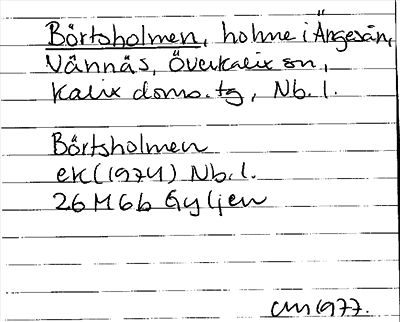 Börtsholmen, holme i Ängesån,
Vännäs, Överkalix sn,
Kalix doms.tg, Nb.l.
Börtsholmen
ek (1974) Nb.l.
26 M 6b Gyljen
1977.